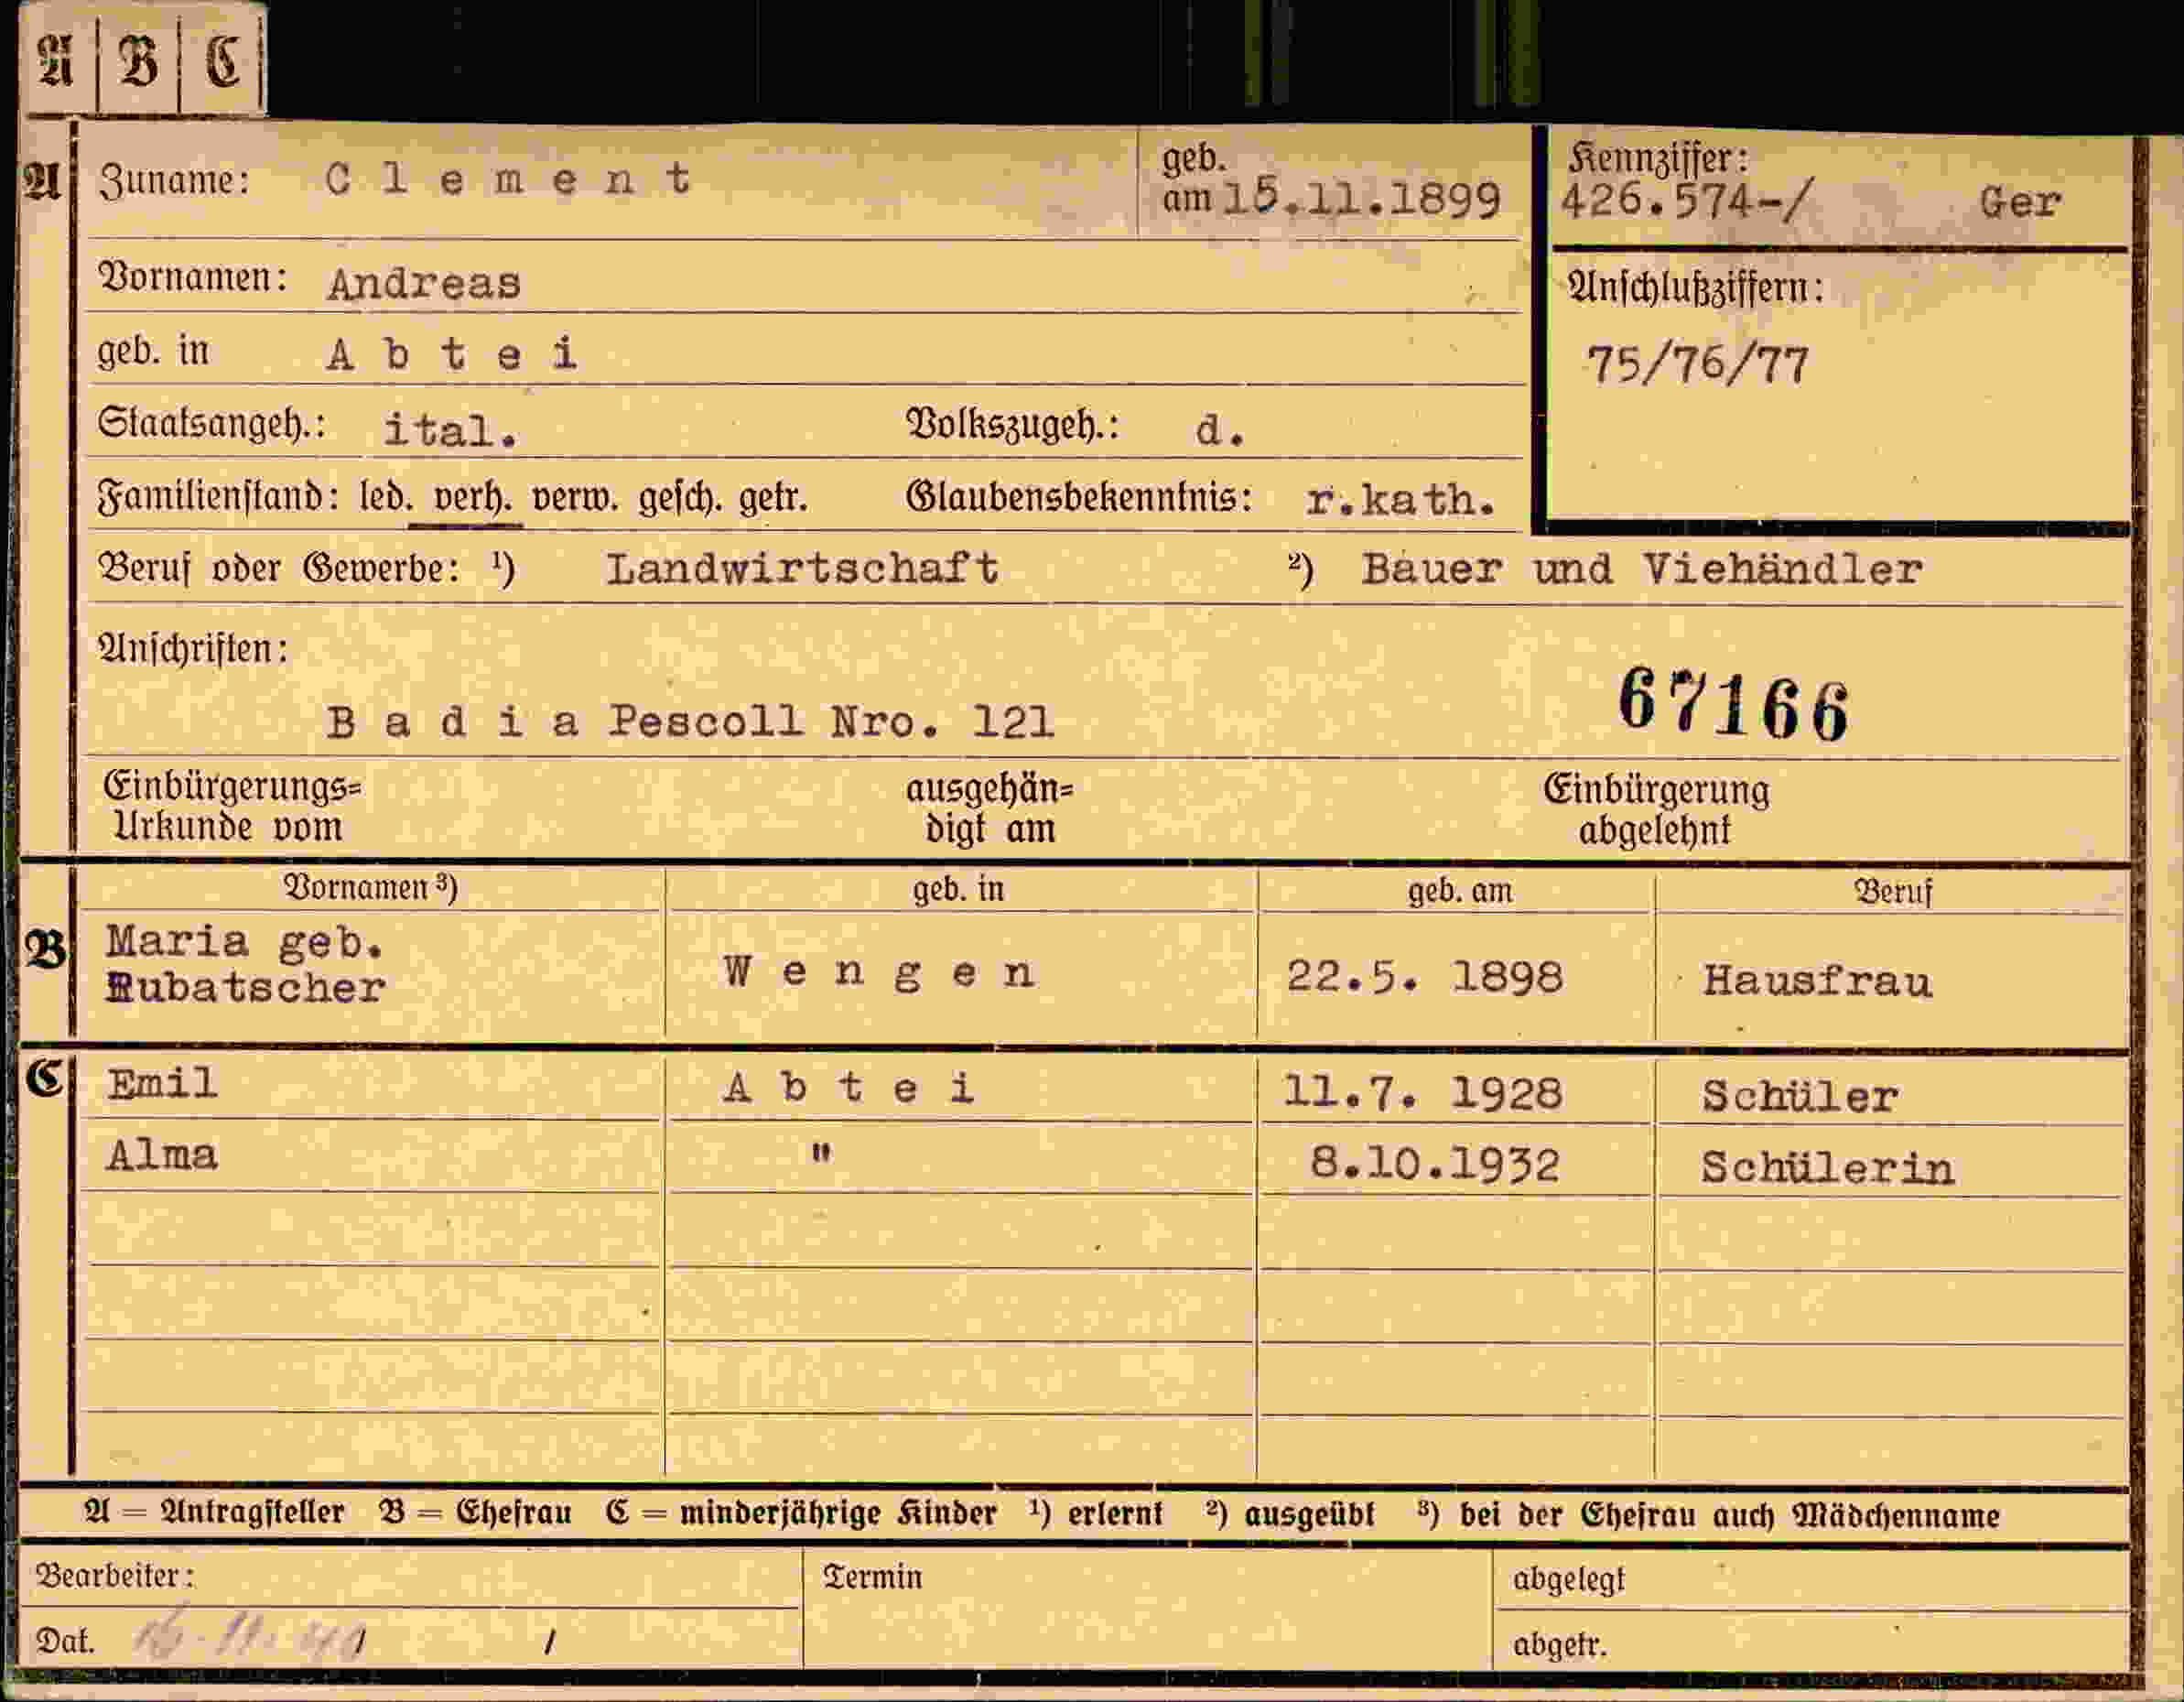 A B C
A Zuname: Clement geb. am 15.11.1899 Kennziffer: 426.574-/ Ger
Vornamen: Andreas
Anschlußziffern:
geb. in Abtei 75/76/77
Staatsangeh.: ital. Volkszugeh.: d.
Familienstand: led. verh. verw. gesch. getr. Glaubensbekenntnis: r.kath.
Beruf oder Gewerbe: ¹) Landwirtschaft ²) Bauer und Viehändler
Anschriften:
Badia Pescoll Nro. 121 67166
Einbürgerungs= ausgehän= Einbürgerung
Urkunde vom digt am abgelehnt
Vornamen ³) geb. in geb. am Beruf
B Maria geb.
Rubatscher Wengen 22.5. 1898 Hausfrau
C Emil Abtei 11.7. 1928 Schüler
Alma " 8.10.1932 Schülerin
A = Antragsteller B = Ehefrau C = minderjährige Kinder ¹) erlernt ²) ausgeübt ³) bei der Ehefrau auch Mädchenname
Bearbeiter: Termin abgelegt
Dat. / abgetr.